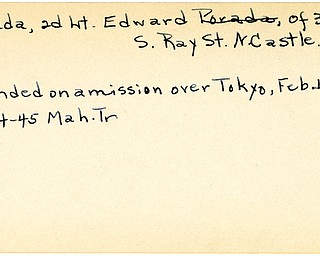 da, 2d Lt. Edward Porada, of
S. Ray St. N.Castle.
nded on a mission over Tokyo, Feb.
4-45 Mah.Tr